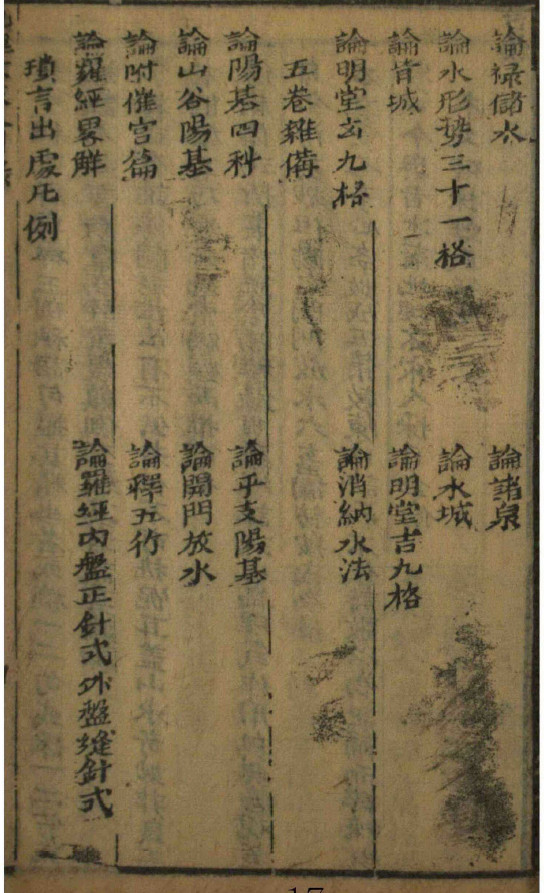 論祿儲水　論諸泉
論水形势三十一格　論水城
論背城　論明堂吉九格
論明堂玄九格　論消納水法
五卷雜備
論陽基四科　論平支陽基
論山谷陽基　論開門放水
論附催官篇　論釋五行
論羅經畧解　論羅經內盤正針式外盤縫針式
瑣言出處凡例
17